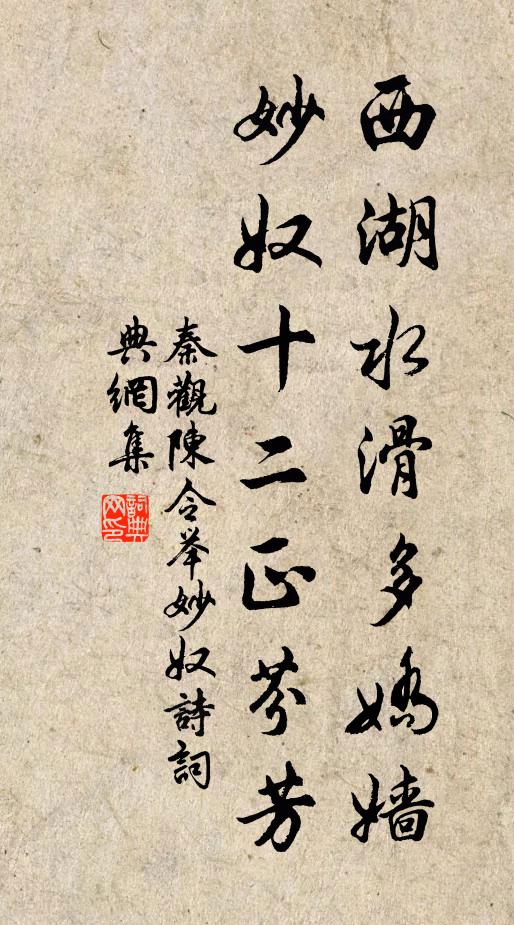 西湖水滑多嬌嬙
妙奴十二正芬芳
秦觀陳令举妙奴詩詞
典網集
詞典网印